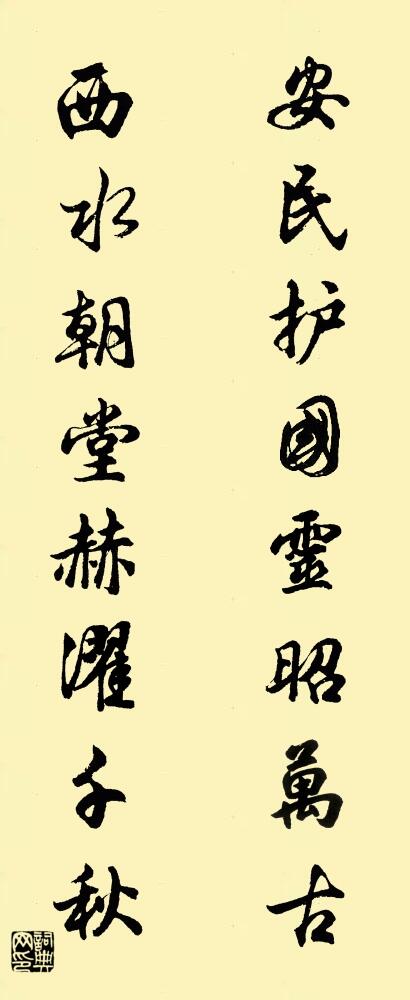 安民护國靈昭萬古
西水朝堂赫濯千秋
詞典网印